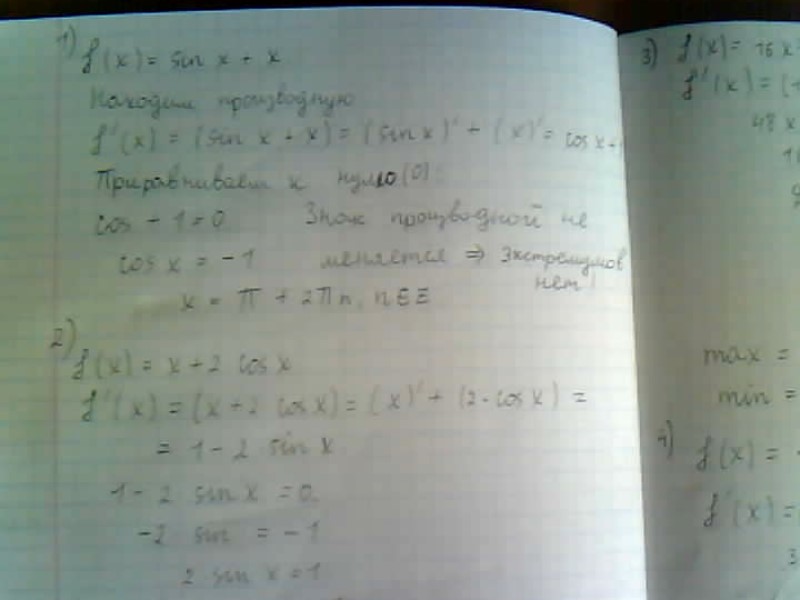 1)
f(x) = sin x + x
Находим производную
f'(x) = (sin x + x) = (sin x)' + (x)' = cos x +
Приравниваем к нулю (0):
cos - 1 = 0 Знак производной не
cos x = -1 меняется ⇒ Экстремумов
нет!
x = π + 2πn, n ∈ Z
2)
f(x) = x + 2 cos x
f'(x) = (x + 2 cos x) = (x)' + (2·cos x) =
= 1 - 2 sin x
1 - 2 sin x = 0
-2 sin = -1
2 sin x = 1
3) f(x) = 16x
f'(x) = (
48x
max =
min =
4)
f(x) =
f'(x) =
3